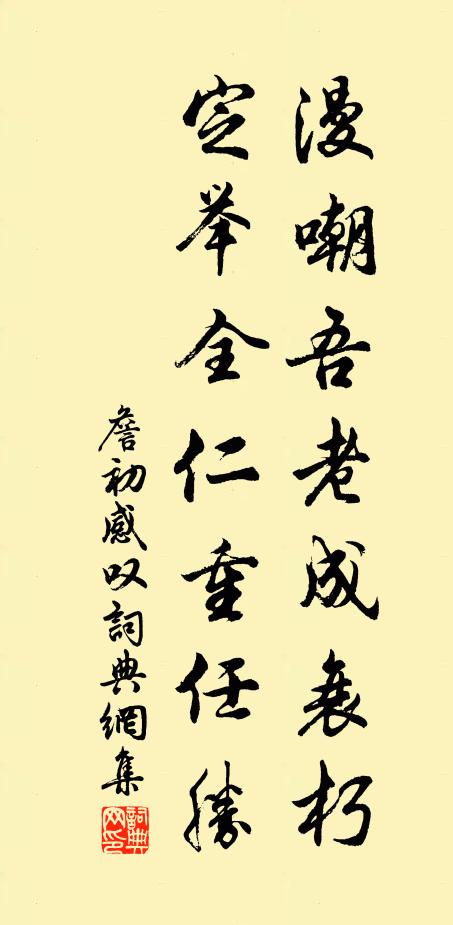 漫嘲吾老成衰朽
定举全仁重任勝
詹初感叹詞典網集
詞典網印